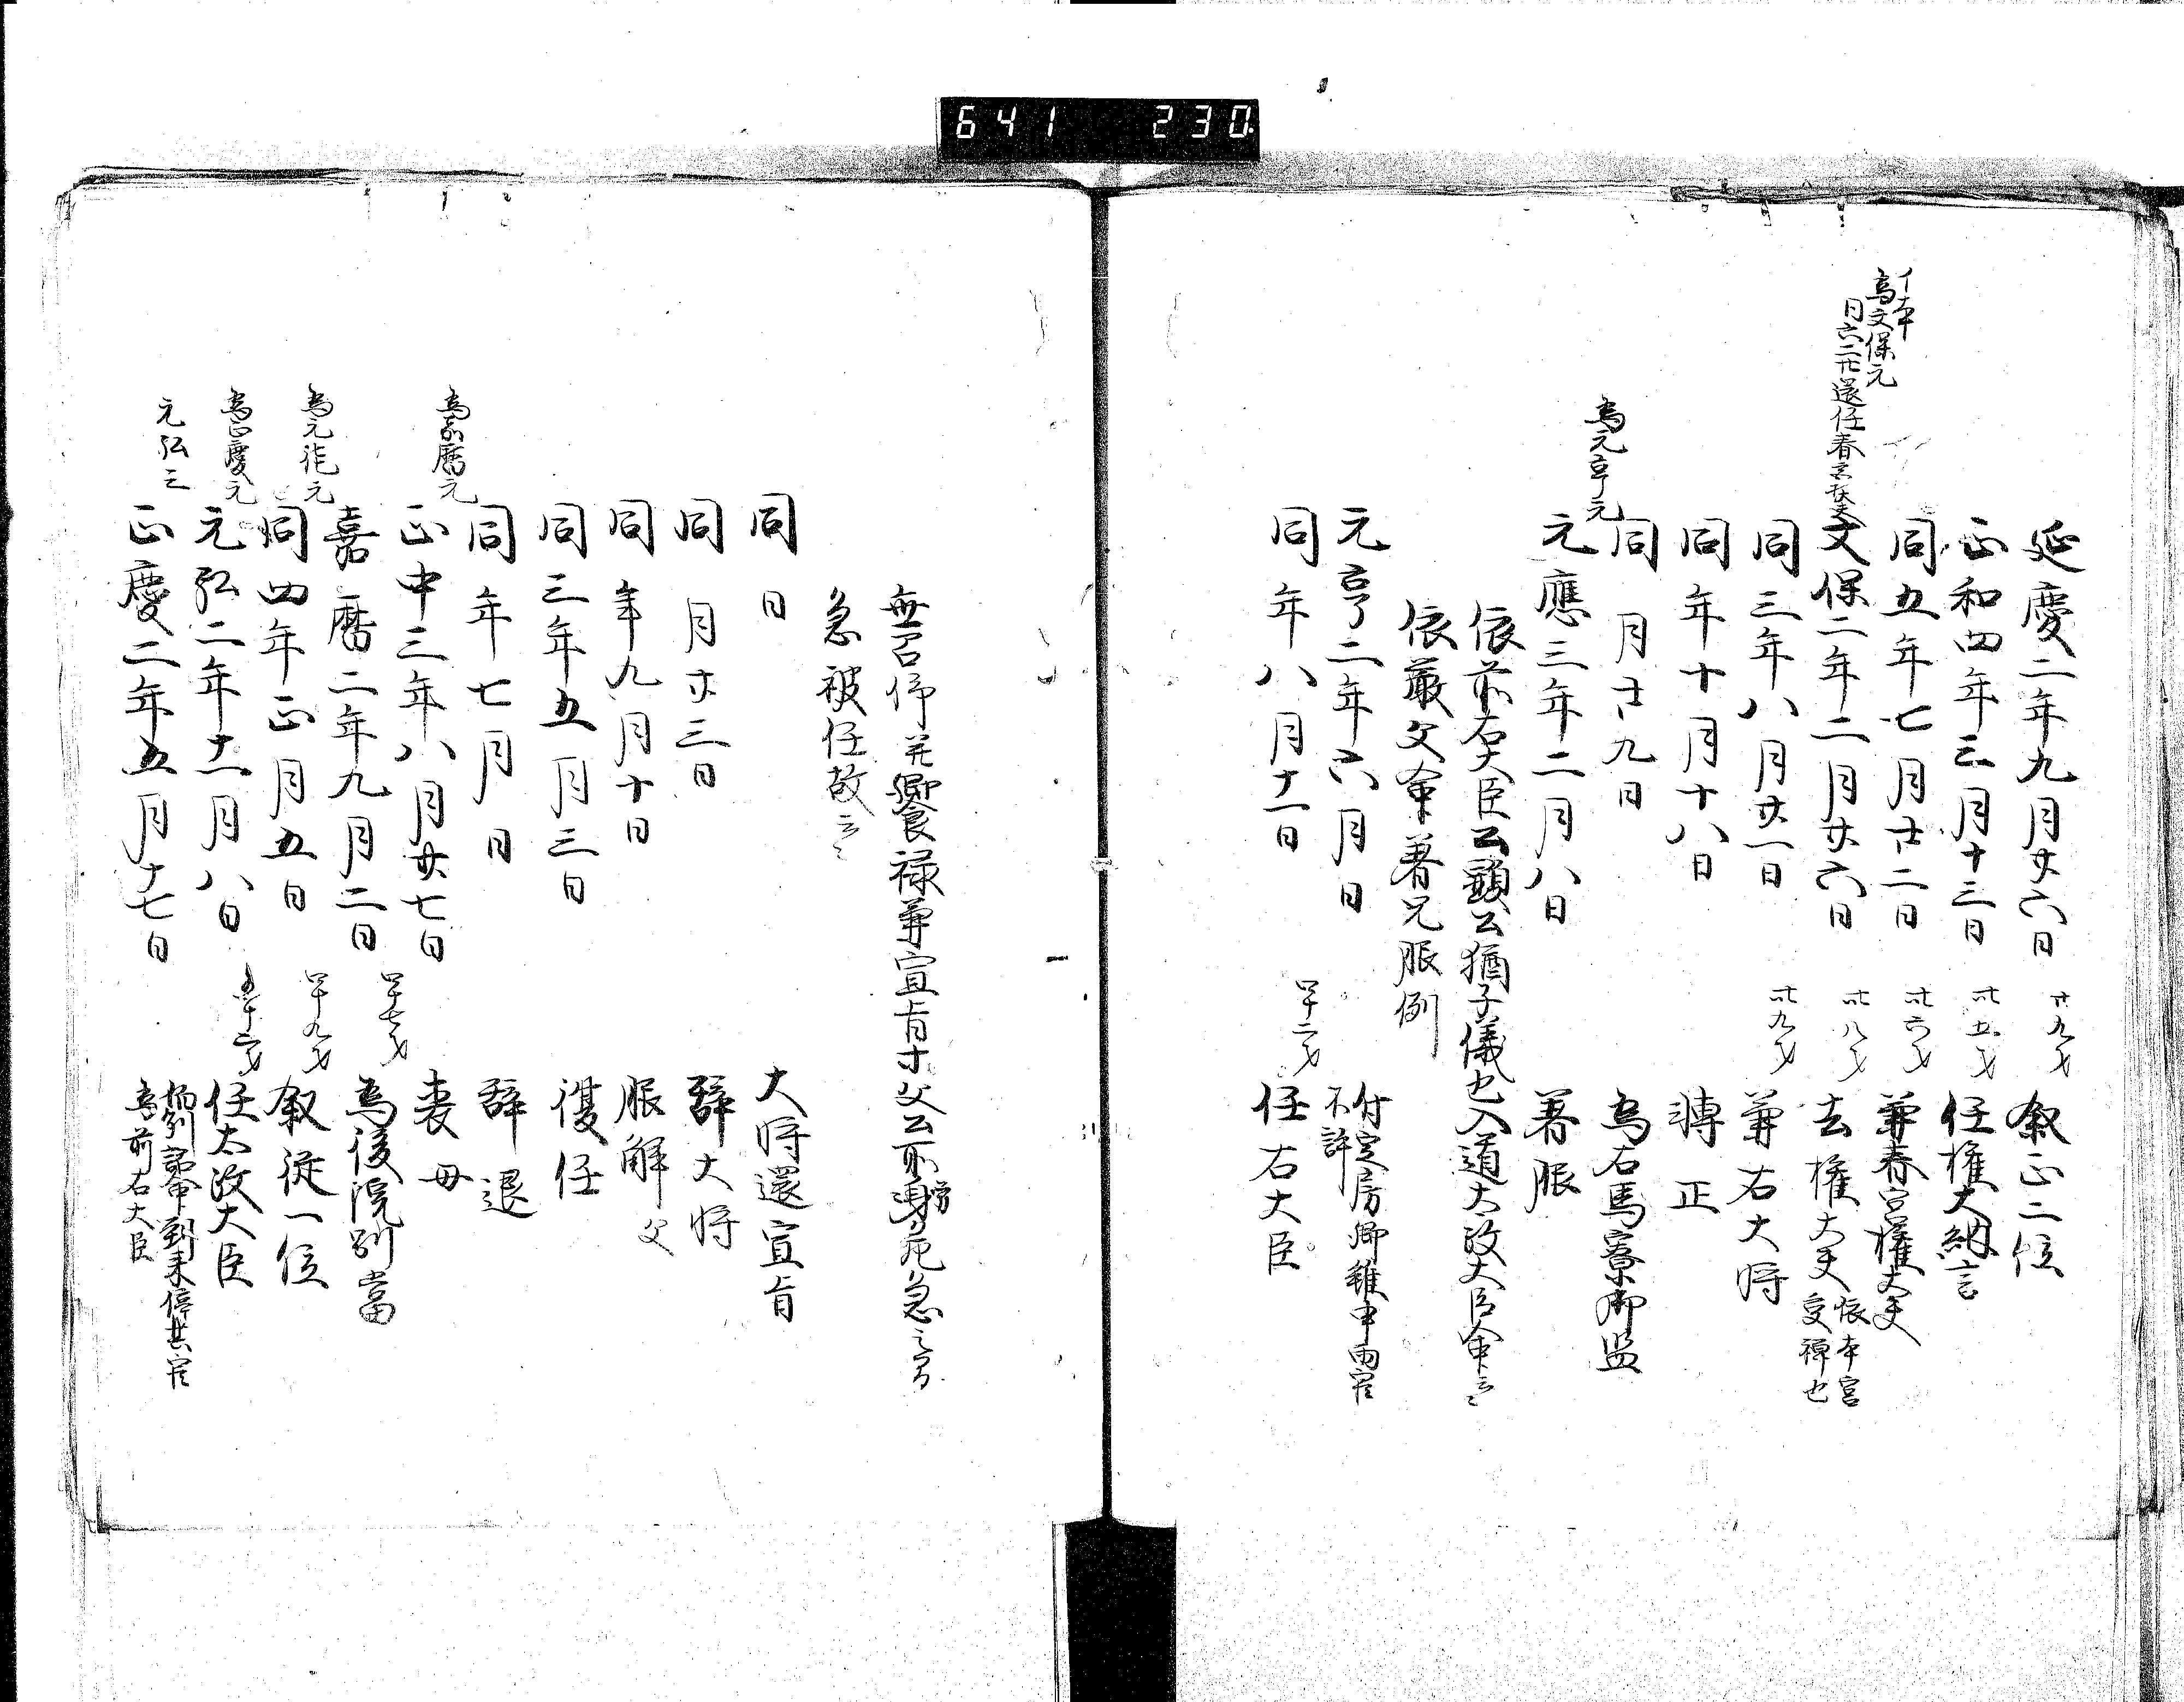 641 230
延慶二年九月廿六日 廿九才 叙正二位
正和四年三月十三日 卅五才 任權大納言
同五年七月廿二日 卅六才 兼春宮權大夫
イ本
為文保元
文保二年二月廿六日 卅八才 去權大夫 依本宮
受禅也
同三年八月廿一日 卅九才 兼右大将
同年十月十八日 轉正
同月廿九日 為右馬寮御監
為元亨元
元應三年二月八日 著服
依前右大臣公顕公猶子儀也入道太政大臣命云々
依嚴父命著兄服例
元亨二年六月日 付定房卿雖申両官
不許
同年八月十一日 四十二才 任右大臣
無召仰并饗禄兼宣旨
急被任故云々
同日 大将還宣旨
同月廿三日 辞大将
同年九月十日 服解父
同三年五月三日 復任
同年七月日 辞退
為嘉暦元
正中三年八月廿七日 喪母
嘉暦二年九月二日 四十七才 為後院別當
為元徳元
同四年正月五日 四十九才 叙従一位
為正慶元
元弘二年十一月八日 任太政大臣
元弘三
正慶二年五月十七日 詔命到来停其官
為前右大臣